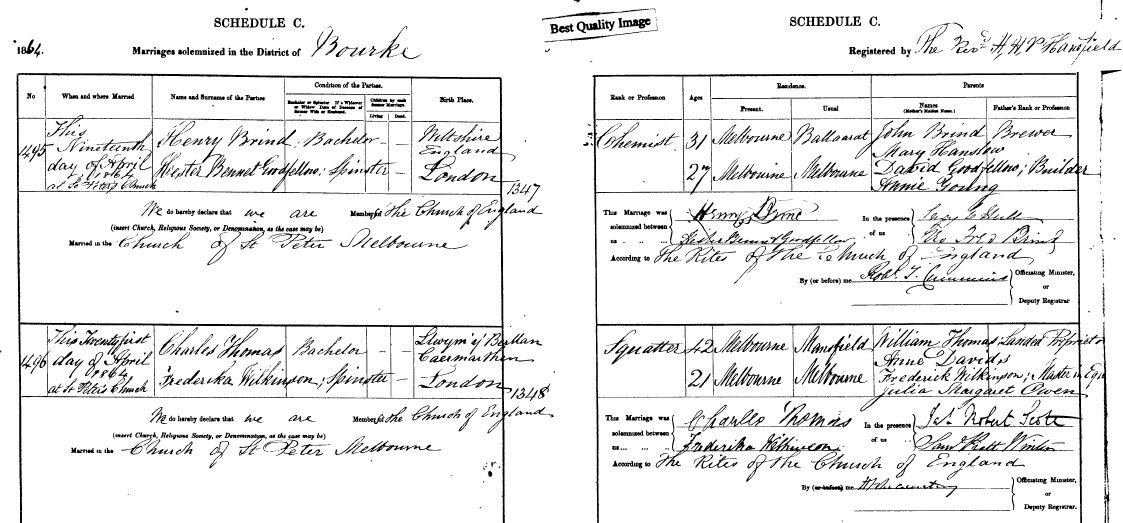 SCHEDULE C.
1864.
Marriages solemnized in the District of Bourke
No
When and where Married
Name and Surname of the Parties
Condition of the Parties.
Bachelor or Spinster If a Widower or Widow Date of Decease of former Wife or Husband.
Children by each former Marriage.
Living
Dead.
Birth Place.
1495
This Nineteenth
day of April
1864
at St Peter's Church
Henry Brind,
Bachelor
-
-
Wiltshire
England
Hester Bennet Goodfellow;
Spinster
-
London
1347
We do hereby declare that we are Members of The Church of England
(insert Church, Religious Society, or Denomination, as the case may be)
Married in the Church of St Peter Melbourne
1496
This Twenty first
day of April
1864
at St Peter's Church
Charles Thomas
Bachelor
-
-
Caermarthen
Frederika Wilkinson;
Spinster
-
London
1348
We do hereby declare that we are Members of The Church of England
(insert Church, Religious Society, or Denomination, as the case may be)
Married in the Church of St Peter Melbourne
Best Quality Image
SCHEDULE C.
Registered by The Revd H. H. P. Hansfield
Rank or Profession
Ages
Residence.
Present.
Usual
Parents
Names
(Mother's Maiden Name.)
Father's Rank or Profession
Chemist
31
Melbourne
Ballaarat
John Brind
Brewer
Mary Hanslow
27
Melbourne
Melbourne
David Goodfellow;
Builder
Annie Young
This Marriage was
solemnized between
us
Henry Brind
Hester Bennet Goodfellow
In the presence
of us
Brind
According to The Rites of the Church of England
By (or before) me Robt. T. Cummins
Officiating Minister,
or
Deputy Registrar
Squatter
42
Melbourne
Mansfield
William Thomas
Landed Proprietor
Anne Davids
21
Melbourne
Melbourne
Frederick Wilkinson;
Master in Equi
Julia Margaret Owen
This Marriage was
solemnized between
us
Charles Thomas
Frederika Wilkinson
In the presence
of us
Jas. Robert Scott
Saml Pratt Winter
According to The Rites of The Church of England
By (or before) me
Officiating Minister,
or
Deputy Registrar.